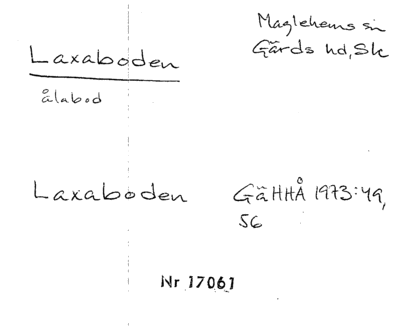 Maglehems sn
Gärds hd, Sk
Laxaboden
ålabod
Laxaboden GäHHÅ 1973:49,
56
Nr 17061